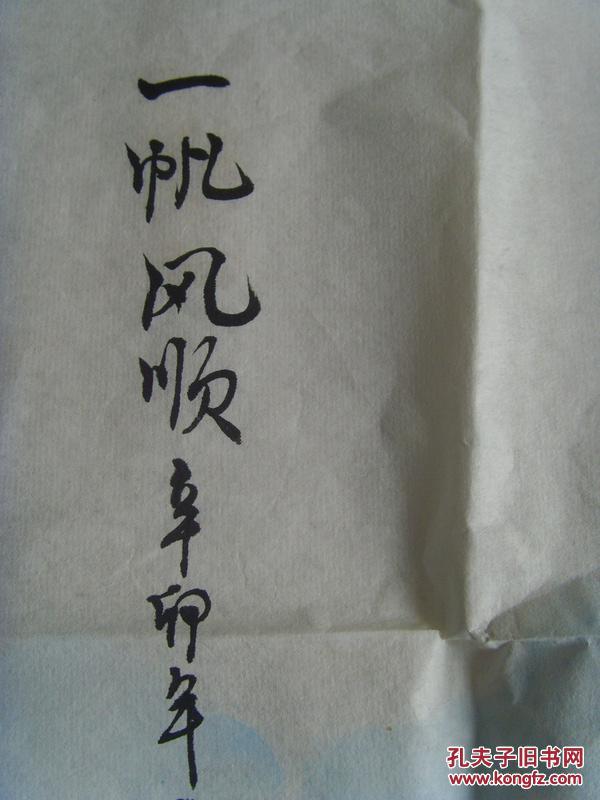 一帆风顺辛卯年
孔夫子旧书网
www.kongfz.com